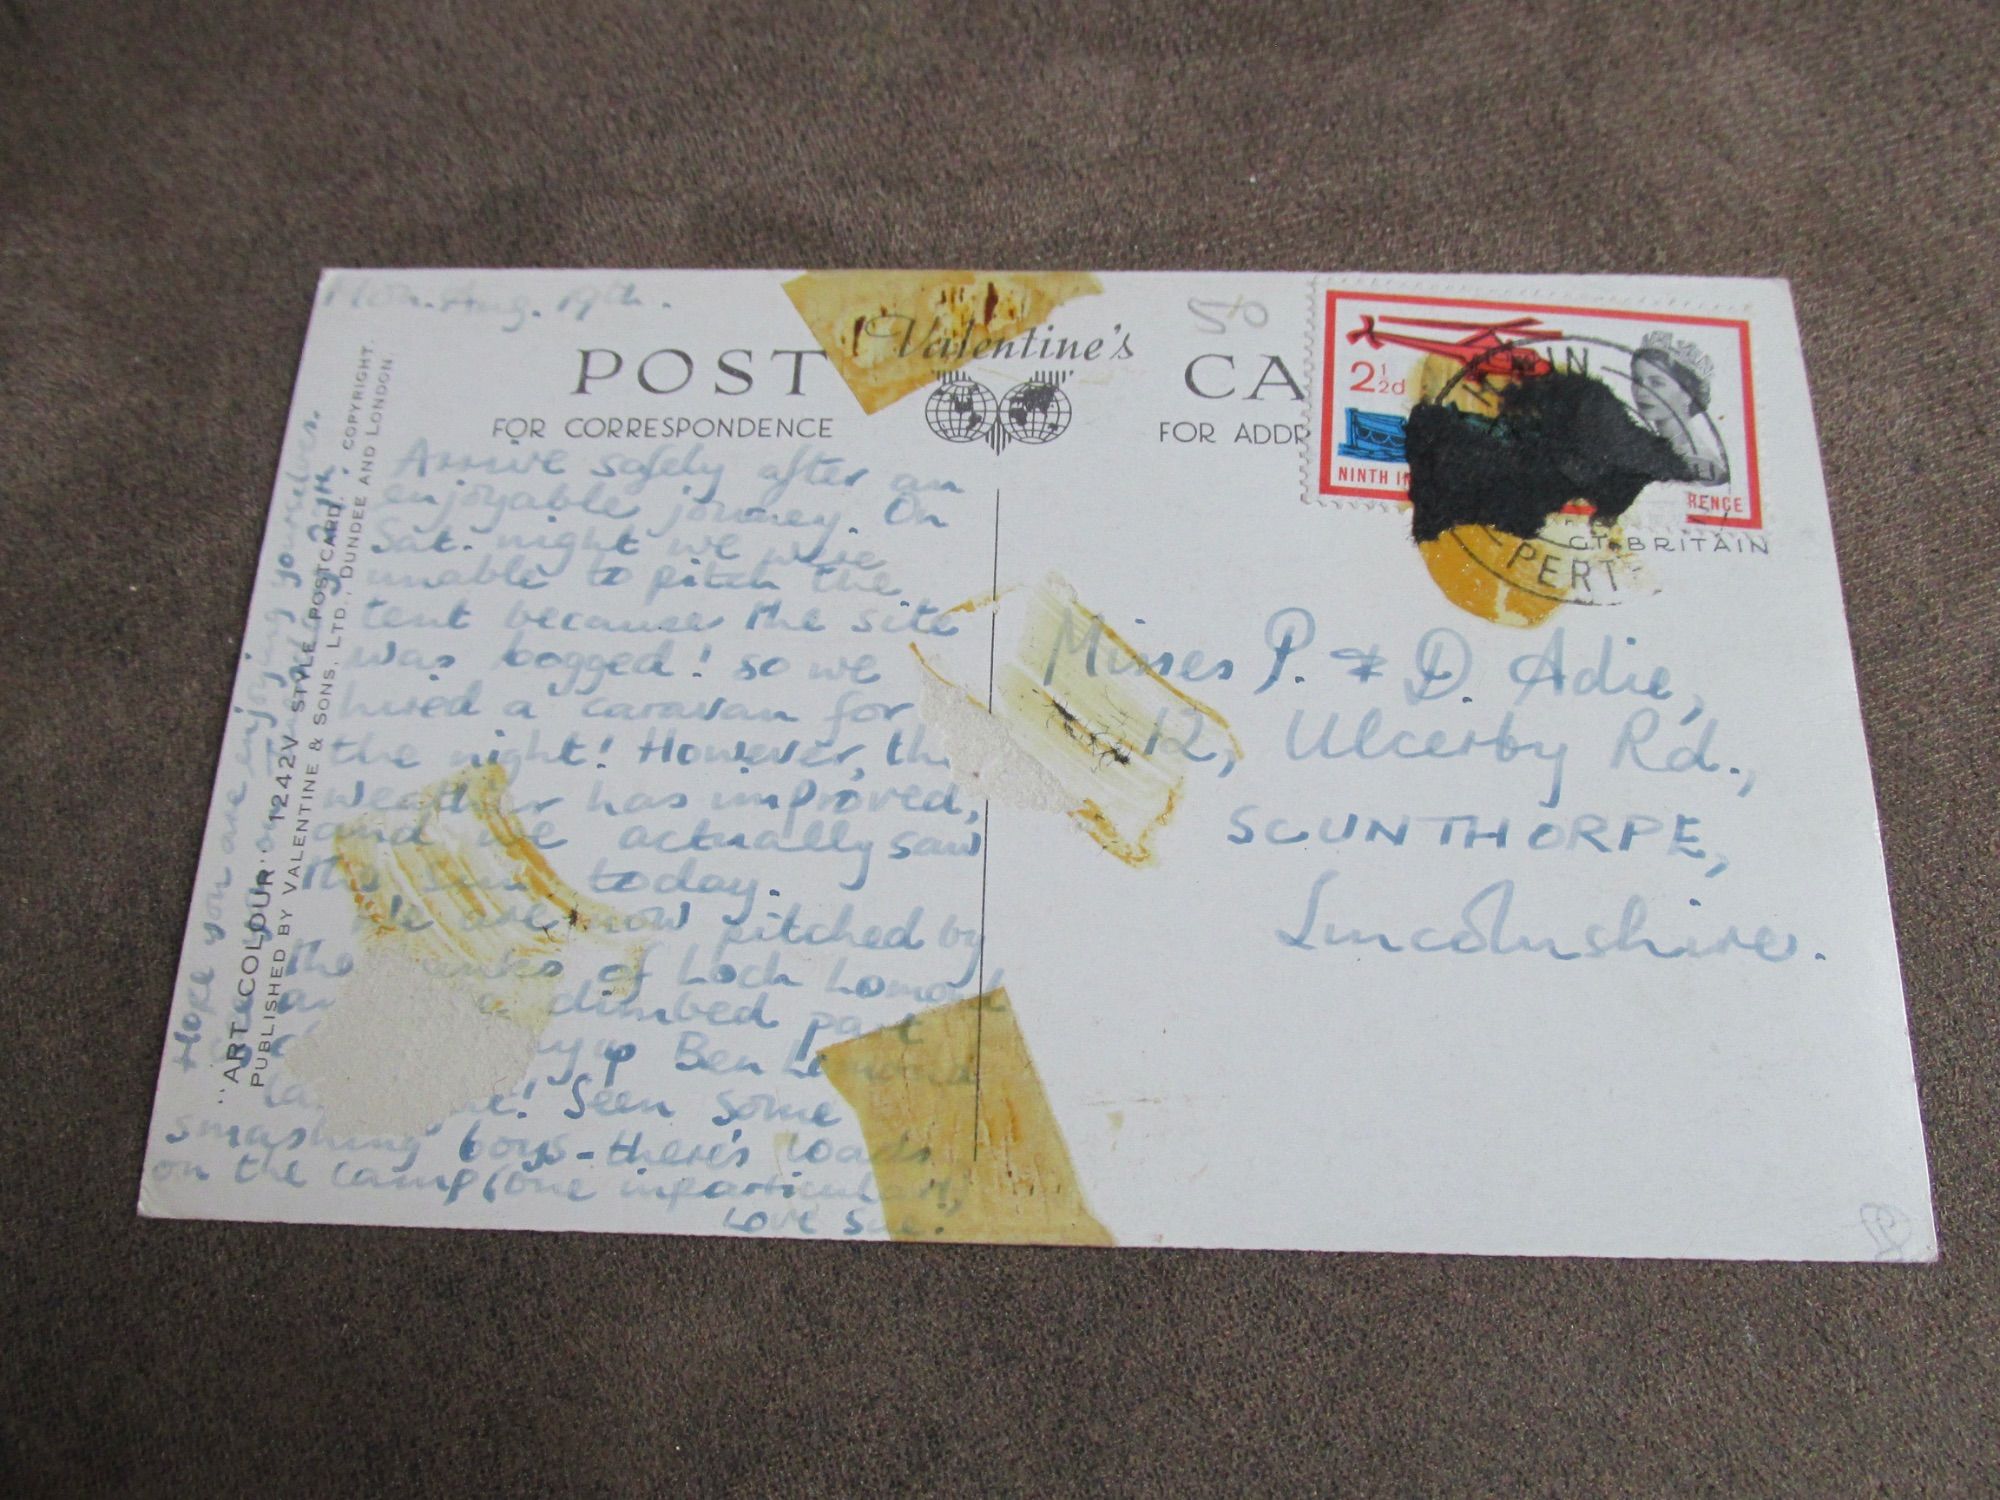 Mon. Aug. 19th.
POST CA
Valentine's
FOR CORRESPONDENCE
FOR ADDR
50
2½d
NINTH IN
RENCE
PERT
GT. BRITAIN
Arrive safely after an
enjoyable journey. On
Sat. night we were
unable to pitch the
tent because the site
was bogged! so we
hired a caravan for
the night! However, the
weather has improved,
and we actually saw
the sun today.
We are now pitched by
the banks of Loch Lomond
climbed part
up Ben Lomond
Seen some
smashing boys - there's loads
on the camp (one in particular!)
Love Sue.
Hope you are enjoying yourselves.
"ART COLOUR" 1242V STYLE POSTCARD. COPYRIGHT.
PUBLISHED BY VALENTINE & SONS, LTD., DUNDEE AND LONDON
Misses P. & D. Adie,
12, Ulcerby Rd.,
SCUNTHORPE,
Lincolnshire.